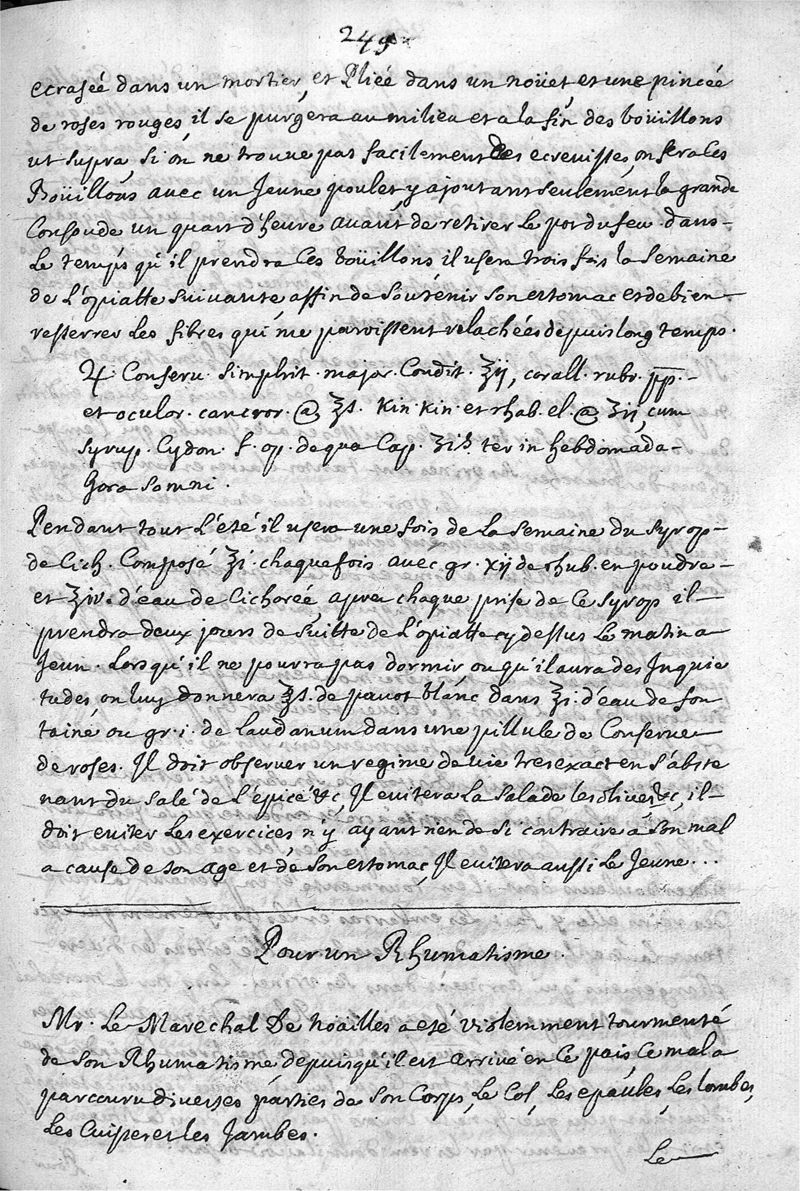 249
ecrasée dans un mortier, et Pliée dans un noüet et une pincée
de roses rouges, il se purgera au milieu et a la fin des boüillons
ut supra, si on ne trouue pas facilement des ecreuisses, on fera les
Boüillons avec un Jeune poulet y ajoutant seulement la grande
Consoude un quart d'heure auant de retirer le pot du feu. dans
Le temps qu'il prendra Ces boüillons il usera trois fois la Semaine
de L'opiatte suivante affin de soutenir son estomac et de bien
resserrer Les fibres qui me paroissent relachées depuis long temps.
♃. Conseru. simphit. major. Condit. ʒij, corall. rubr. pp.
et oculor. cancror. @ ʒs. Kin Kin et rhab. el. @ ʒij, cum
syrup. Cydon. f. op. de qua Cap. ʒis ter in hebdomada
hora somni.
Pendant tout L'été il usera une fois de La semaine du syrop
de Cich. Composé ℥i. chaque fois avec gr. xij de rhub. en poudre
et ℥iv. d'eau de Cichorée, apres chaque prise de Ce syrop il
prendra deux jours de suitte de L'opiatte cy dessus Le matin a
Jeun. Lorsqu'il ne pourra pas dormir ou qu'il aura des Inquie
tudes, on luy donnera ℥s. de pauot blanc dans ℥i. d'eau de fon
taine, ou gr. i. de Laudanum dans une pillule de Conserue
de roses. Il doit obseruer un regime de uie tres exact en s'abste
nant du salé de L'épicé &c, Il euitera La salade les oliues &c, il
doit euiter Les exercices n'y ayant rien de si contraire a son mal
a cause de son age et de son estomac, Il euitera aussi Le Jeune...
Pour un Rhumatisme.
Mr. Le Marechal De Noailles a eté violemment tourmenté
de son Rhumatisme depuis qu'il est arrivé en Ce pais, Ce mal a
parcouru diverses parties de son Corps, Le Col, Les epaules, Les lombes,
Les Cuisses et les Jambes.
Le